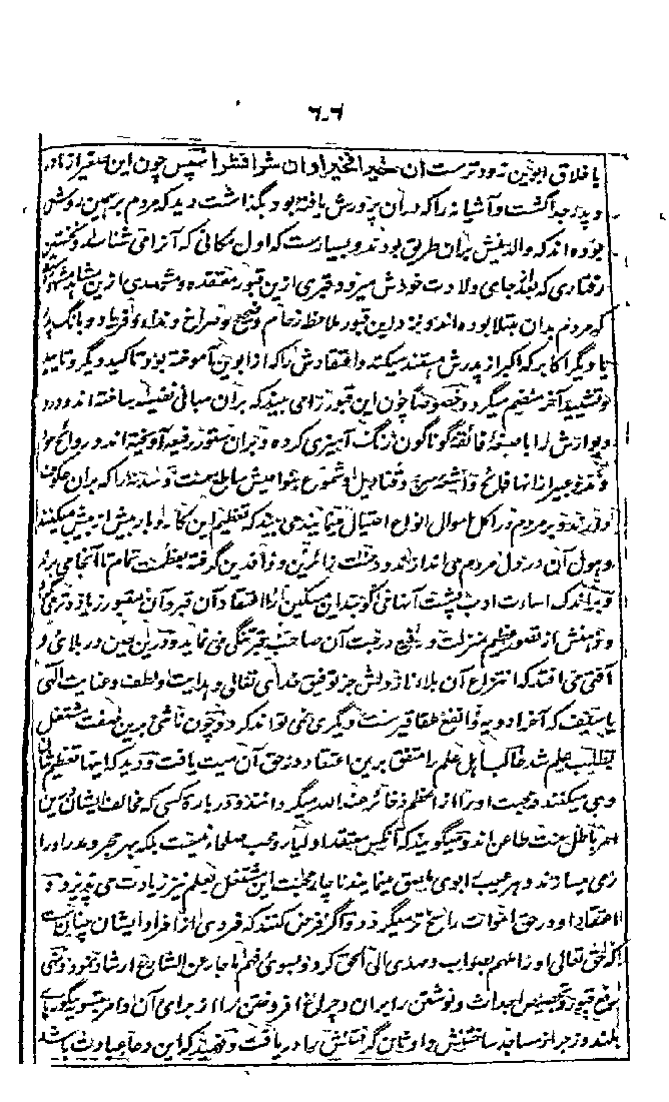 ۶۰۶
باخلاق ابوین زودترست ان خیرا فخیرا وان شرا فشرا پس چون این صغیر از
جدا گشت و آشیانه را که دران پرورش یافته بود بگذاشت دید که مردم بر همین روش
بوده اند که والدینش بران طریق بودند و بسیارست که اول مکانی که آنرا می شناسد و نخستین
رفتاری که بعد جای ولادت خودش میرود قبری ازین قبور معتقده و مشهدی ازین مشاهد
که مردم بدان مبتلا بوده اند و نزد این قبور ملاحظه زحام و ضجیج و صراخ و نداء
یا دیگر اکابر که اکبر از پدرش هستند میکند و اعتقادش را که از ابوین آموخته بود تاکید دیگر و تایید
و تشیید آخر منضم میگردد خصوصا چون این قبور را می بیند که بران مبانی نفیسه ساخته اند و در و
دیوارش را باصبغه فائقه گوناگون رنگ آمیزی کرده و بران ستور رفیعه آویخته اند و روائح
عبیر ازانها فائح و قنادیل و شموع بجوانبش ساطع هست و سدنه را که بران
و بر مردم در اکل اموال انواع احتیال مینمایند می بیند که تعظیم این کار و بار بیش از بیش میکنند
و هول آن در دل مردم می اندازند و دست زائرین و وافدین گرفته بعظمت تمام تا آنجا می برند
این مسکین را اعتقاد آن قبر و آن مقبور زیاده تر
و ذهنش از تصور عظیم منزلت و رفیع درجت آن صاحب قبر تنگی می نماید و درین حین در بلائی و
آفتی می افتد که انتزاع آن بلا از دلش جز توفیق خدای تعالی و هدایت و لطف و عنایت الهی
یا سیف که آخر ادویه و انفع عقاقیرست دیگری نمی تواند کرد و چون ناشی برین صفت مشتغل
بطلب علم شد غالب اهل علم را متفق برین اعتقاد در حق آن میت یافت و دید که اینها تعظیم
وی میکنند و محبت او را از اعظم ذخائر عند الله میگردانند و در باره کسی که مخالف ایشان درین
امر باطل هست طاعن اند و میگویند که آنکس معتقد اولیا و محب صلحا نیست بلکه بهر حجر و مدر او را
رمی میسازند و بهر عیب می نمایند ناچار محبت این مشتغل بعلم نیز زیادت می پذیرد و
اعتقاد او در حق اموات راسخ تر میگردد و اگر فرض کنند که فردی از افراد ایشان چنان ست
که حق تعالی او را ملهم بصواب و مهدی الی الحق کرد و بسوی فهم ما جاء عن الشارع ارشاد نمود و نهی
رفع قبور و تجصیص اجداث و نوشتن بران و چراغ افروختن را از برای آن و امر بتسویه گورهای
بلند و زجر از مساجد ساختنش و اوثان گرفتنش را دریافت و فهمید که این دعا عبادت باشد